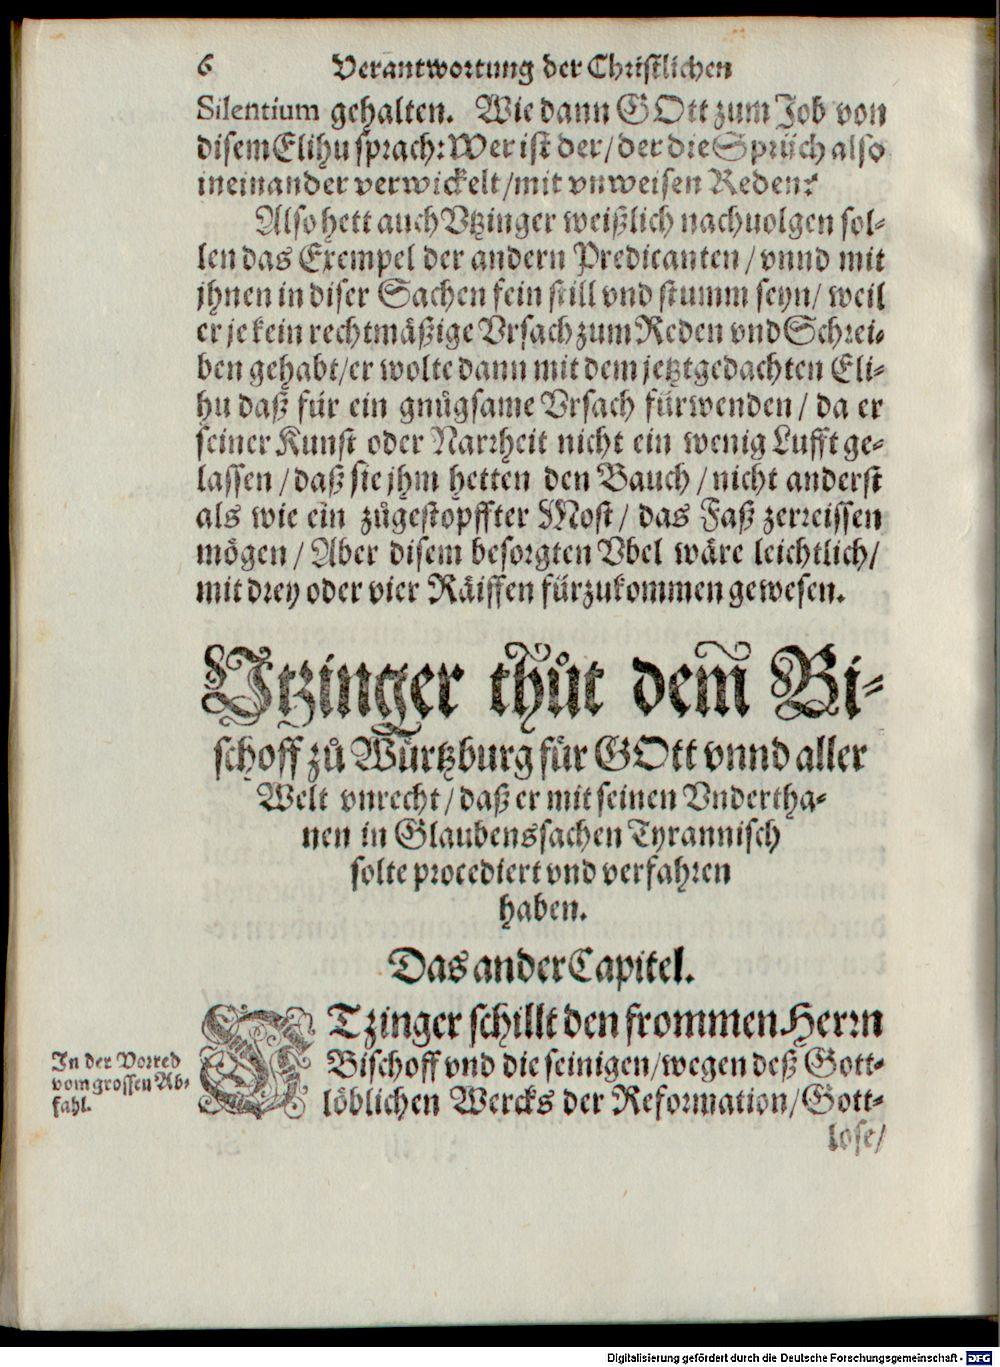 6 Verantwortung der Christlichen
Silentium gehalten. Wie dann GOtt zum Job von
disem Elihu sprach: Wer ist der/ der die Sprüch also
ineinander verwickelt/ mit vnweisen Reden?
Also hett auch Vtzinger weißlich nachuolgen sol-
len das Exempel der andern Predicanten/ vnnd mit
jhnen in diser Sachen fein still vnd stumm seyn/ weil
er je kein rechtmäßige Vrsach zum Reden vnd Schrei-
ben gehabt/ er wolte dann mit dem jetztgedachten Eli-
hu daß für ein gnůgsame Vrsach fürwenden/ da er
seiner Kunst oder Narrheit nicht ein wenig Lufft ge-
lassen/ daß sie jhm hetten den Bauch/ nicht anderst
als wie ein zůgestopffter Most/ das Faß zerreissen
mögen/ Aber disem besorgten Vbel wäre leichtlich/
mit drey oder vier Räiffen fürzukommen gewesen.
Vtzinger thůt dem Bi-
schoff zů Würtzburg für GOtt vnnd aller
Welt vnrecht/ daß er mit seinen Vndertha-
nen in Glaubenssachen Tyrannisch
solte procediert vnd verfahren
haben.
Das ander Capitel.
VTzinger schillt den frommen Herrn
Bischoff vnd die seinigen/ wegen deß Gott-
löblichen Wercks der Reformation/ Gott-
lose/
In der Vorred
vom grossen Ab-
fahl.
Digitalisierung gefördert durch die Deutsche Forschungsgemeinschaft - DFG